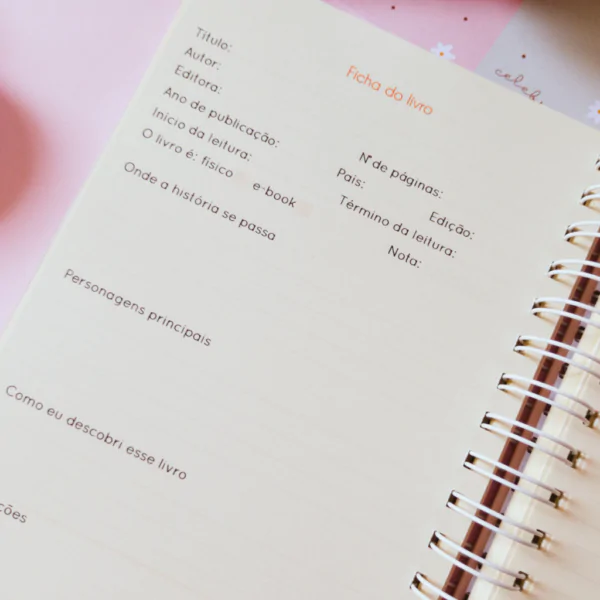 Ficha do livro
Título:
Autor:
Editora:
Nº de páginas:
Ano de publicação:
País:
Edição:
Início da leitura:
Término da leitura:
O livro é: físico e-book
Nota:
Onde a história se passa
Personagens principais
Como eu descobri esse livro
ções